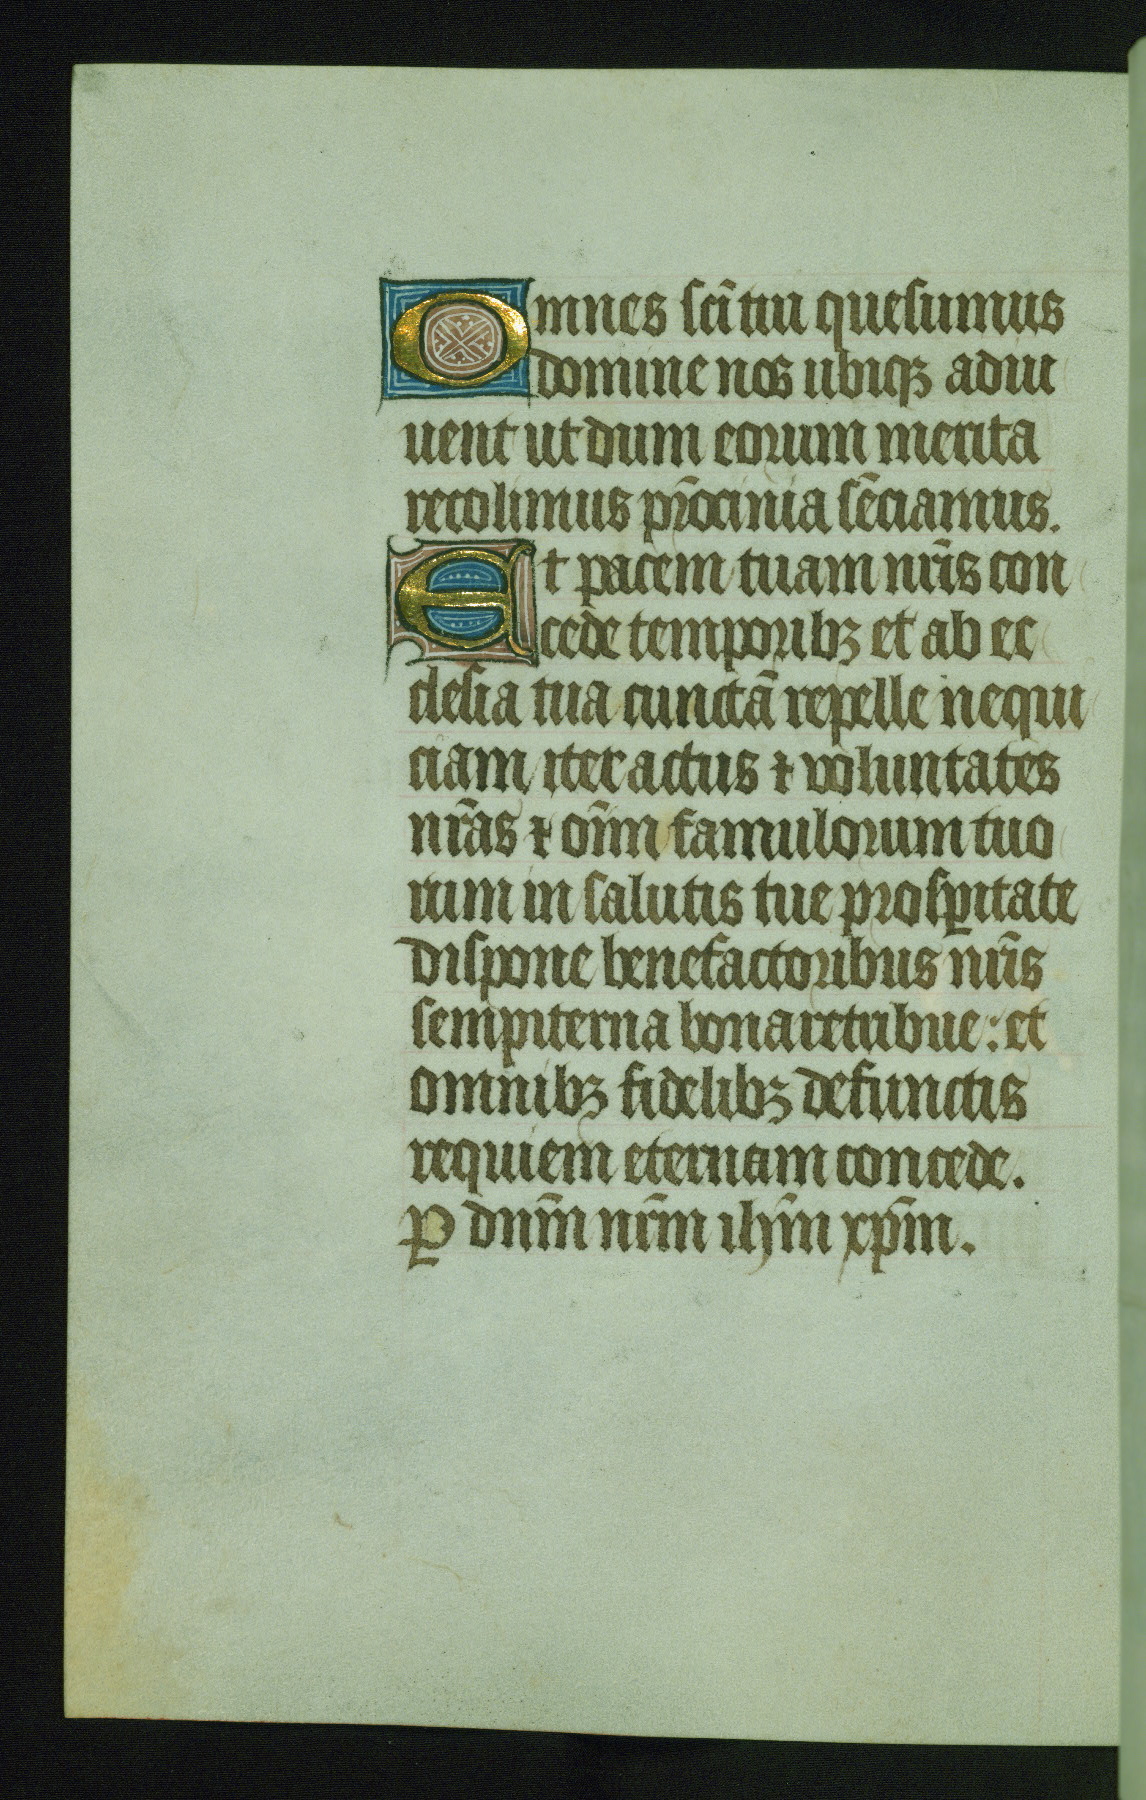 Omnes sc̃i tui quesumus
domine nos ubiqꝫ adiu
uent ut dum eorum merita
recolimus pr̃ocinia sẽciamus.
Et pacem tuam nr̃is con
cede temporibꝫ et ab ec
clesia tua cunctã repelle nequi
ciam iter actus ⁊ voluntates
nr̃as ⁊ om̃m famulorum tuo
rum in salutis tue prosꝑitate
dispone benefactoribus nr̃is
sempiterna bona retribue: et
omnibꝫ fidelibꝫ defunctis
requiem eternam concede.
ꝑ dnm̃ nrm̃ ihm̃ xpm̃.